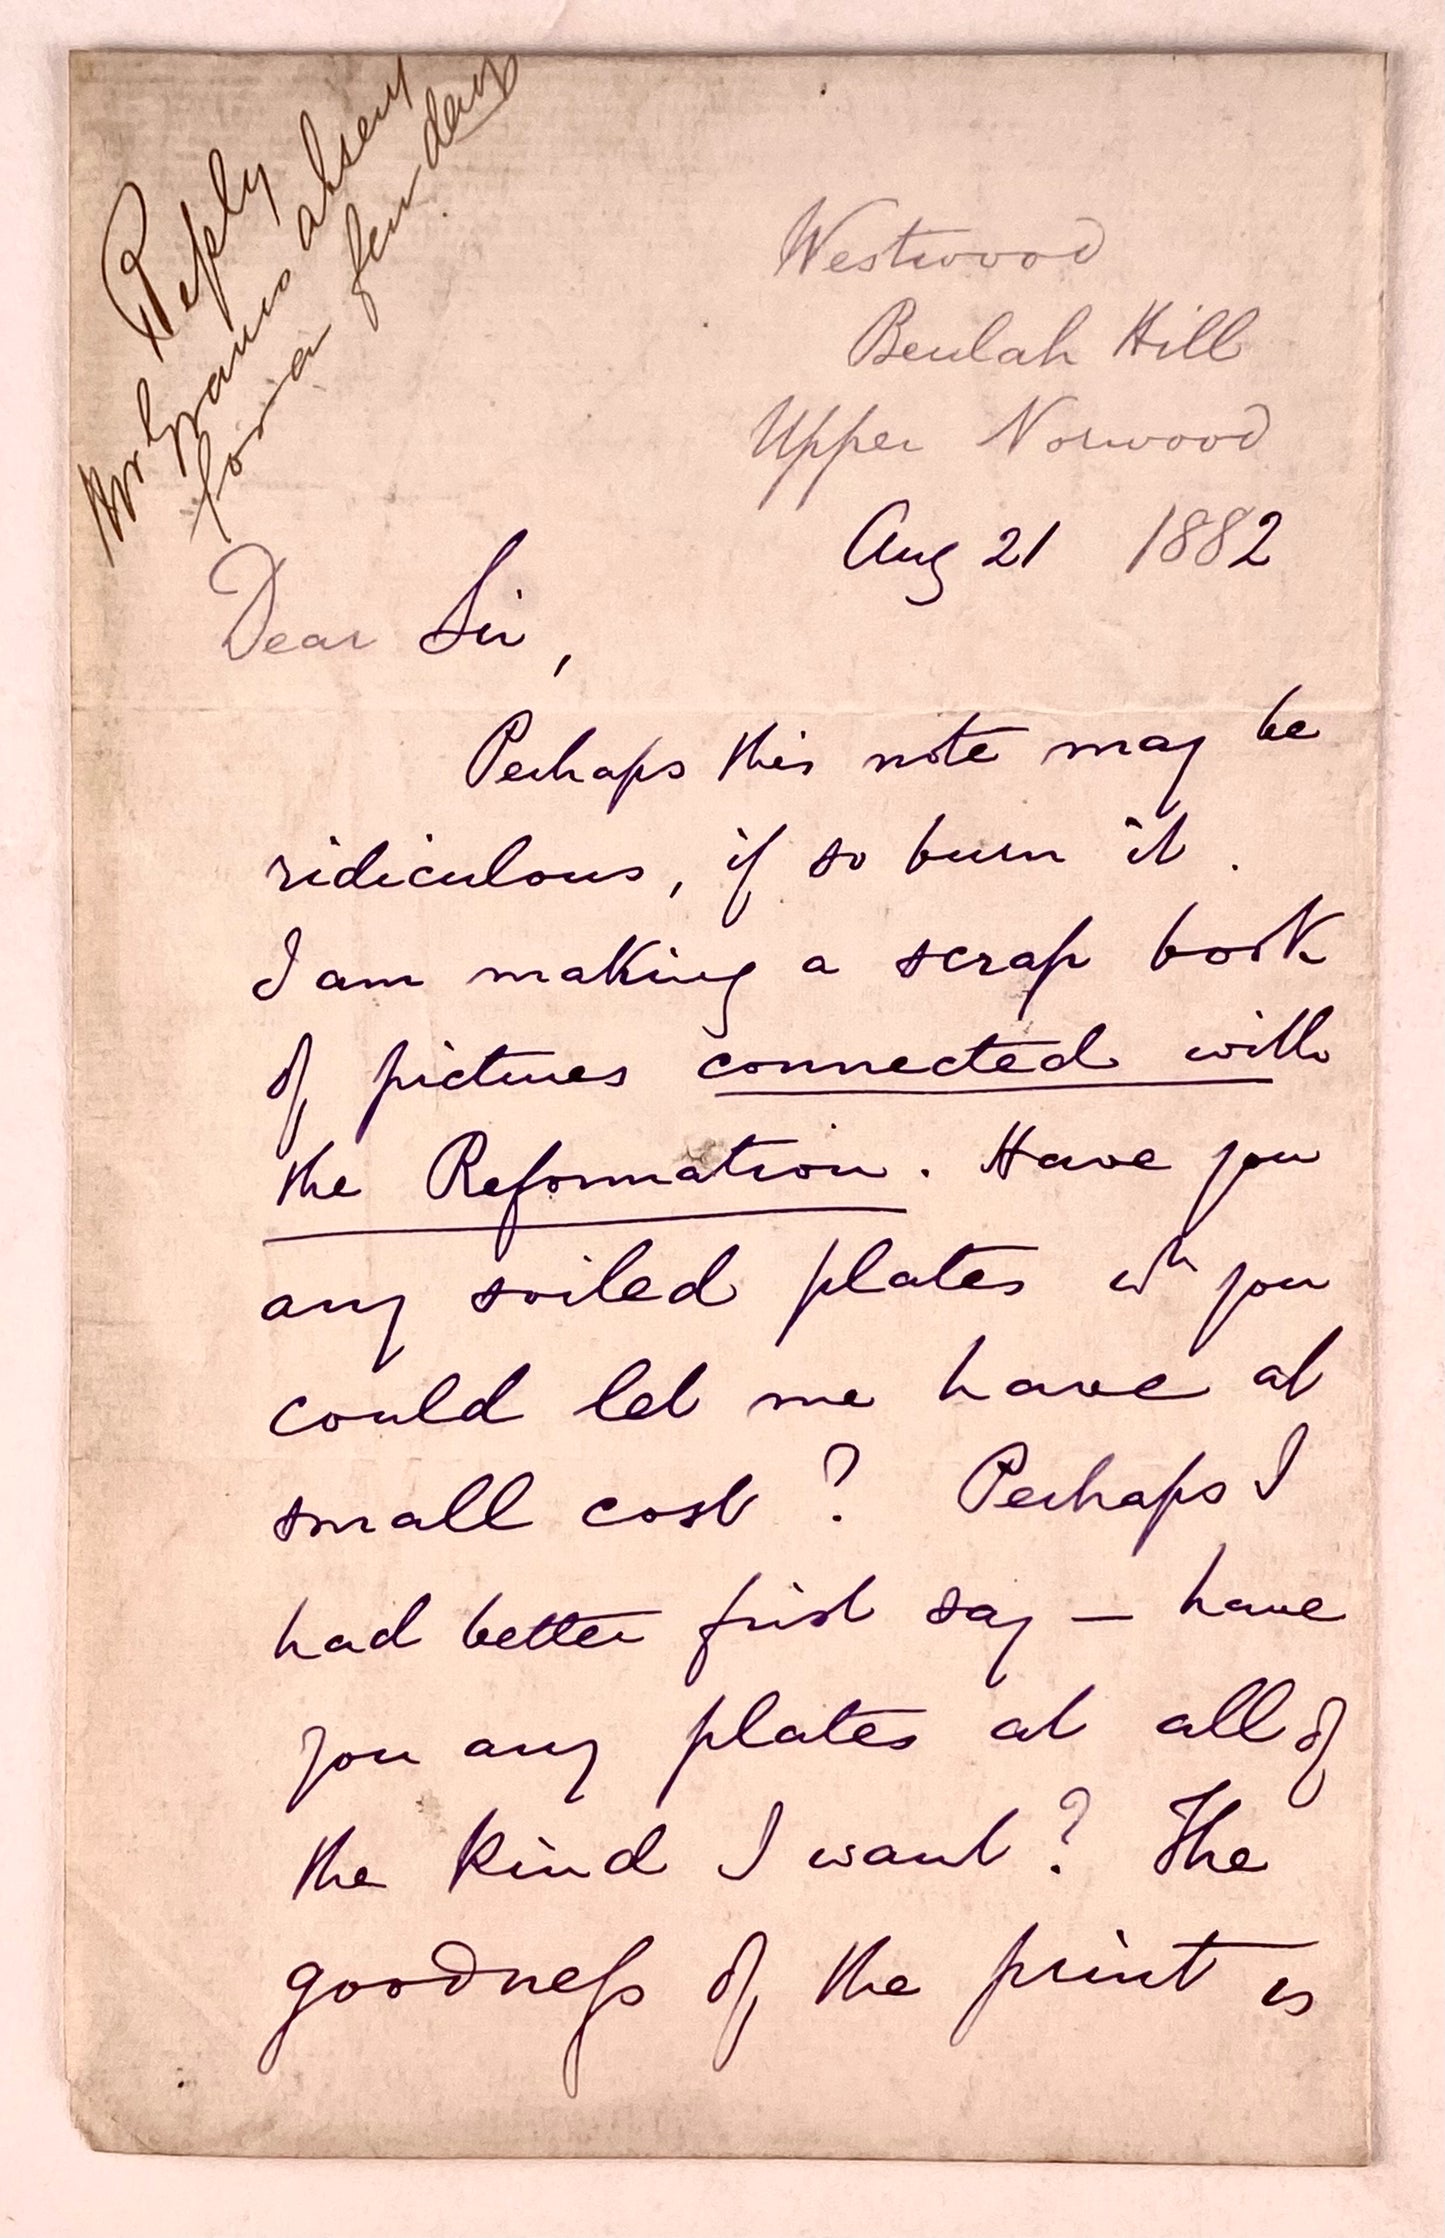 Reply
Mr Graves absent
for a few days
Westwood
Beulah Hill
Upper Norwood
Aug 21 1882
Dear Sir,
Perhaps this note may be
ridiculous, if so burn it.
I am making a scrap book
of pictures connected with
the Reformation. Have you
any soiled plates wh you
could let me have at
small cost? Perhaps I
had better first say — have
you any plates at all of
the kind I want? The
goodness of the print is